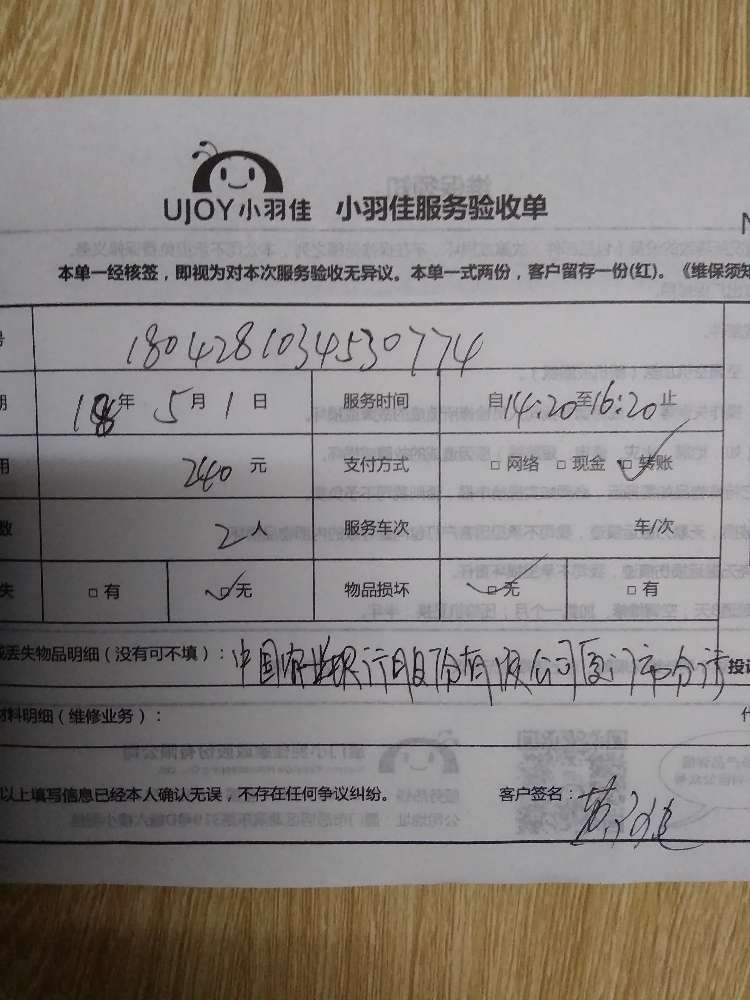 UJOY小羽佳 小羽佳服务验收单
本单一经核签，即视为对本次服务验收无异议。本单一式两份，客户留存一份(红)。《维保须知
号 18042810345530774
期 18年 5月 1日 服务时间 自14:20至16:20止
用 240元 支付方式 □ 网络 □ 现金 ☑ 转账
数 2人 服务车次 车/次
失 □ 有 ☑ 无 物品损坏 ☑ 无 □ 有
或丢失物品明细（没有可不填）： 中国农业银行股份有限公司厦门市分行 投诉
材料明细（维修业务）：
以上填写信息已经本人确认无误，不存在任何争议纠纷。 客户签名：